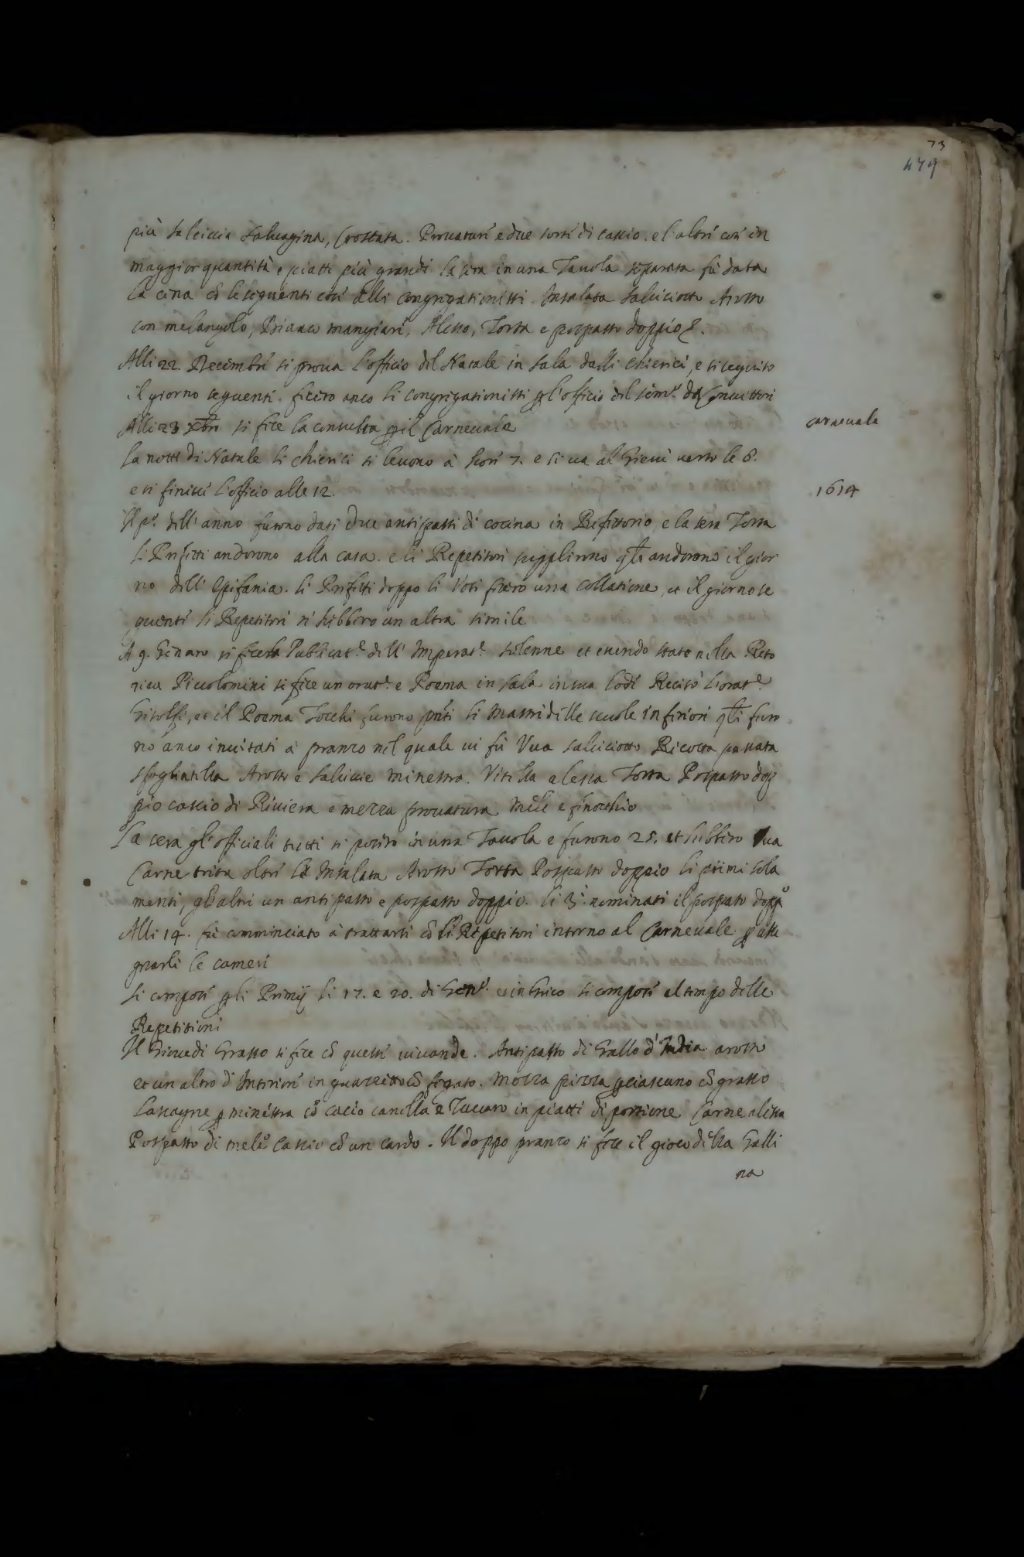 73
479
più salciccie salvagina, Crostata. Provature e due sorti di cascio. e l'altri così in
maggior quantità e piatti più grandi la sera in una Tavola separata fù data
la cena cõ le seguenti cose alli congregationisti. Insalata salcicciotto Arosto
con melangolo, Bianco mangiare, Alesso, Torta e pospasto doppio.
Alli 22. Decembre si prova l'officio del Natale in sala dalli chierici, e si seguito
il giorno seguente. fecero anco li congregationisti l'officio del da Convittori
Alli 23 Xbre si fece la consulta il Carnevale
carnevale
La notte di Natale li chierici si levono à hore 7. e si va al Giesù verso le 8.
e si finisce l'officio alle 12
1614
Il p.º dell'anno furono dati due antipasti di cocina in Refettorio e la sera Torta
li Prefetti andorono alla casa. e li Repetitori supplirono andorono il gior
no dell'Epifania. li Prefetti doppo li Voti fecero una collatione, et il giorno se
guente li Repetitori n'hebbero un altra simile
A 9. Genaro si fece la dell' solenne et essendo stato nella Reto
rica Piccolomini si fece un orat.e e Poema in sala in sua lode Recitò l'orat.e
et il Poema Tocchi furono li Mastri delle scuole inferiori furo
no anco invitati à pranzo nel quale vi fù Vua salcicciotto Ricotta passata
sfogliatella Arosto e salciccie minestra. Vitella alessa Torta Pospasto dop
pio cascio di Riviera e mezza provatura mele e finocchio
La sera gl'officiali tutti si posero in una Tavola e furono 25. et hebbero Vua
Carne trita oltre la Insalata Arosto Torta Pospasto doppio li primi sola
mente, gl'altri un antipasto e pospasto doppio. li nominati il pospasto dopp.º
Alli 14. fù comminciato à trattarsi cõ li Repetitori intorno al Carnevale
gnarli le camere
li compose li Primij li 17. e 20. di si compose al tempo delle
Repetitioni
Il Giovedì Grasso si fece cõ queste vivande. Antipasto di Gallo d'India arosto
et un altro d'Interiori in guazzetto cõ fegato. Mezza pizza ciascuno cõ grasso
Lasagne minestra cõ cacio canella e Zuccaro in piatti di portione Carne alessa
Pospasto di mele Cascio cõ un cardo. Il doppo pranzo si fece il gioco della Galli
na